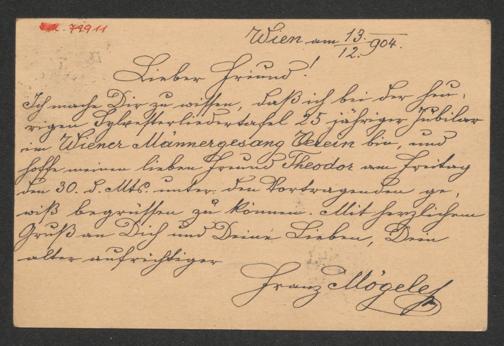 I.N. 79911
Wien am 13./12. 904.
Lieber Freund!
Ich mache Dir zu wissen, daß ich bei der heu-
rigen Sylvesterliedertafel 25 jähriger Jubilar
im Wiener Männergesang Verein bin, und
hoffe meinen lieben Freund Theodor am Freitag
den 30. d. Mts. unter den Vortragenden ge-
wiß begrüssen zu können. Mit herzlichem
Gruß an Dich und Deine Lieben, Dein
alter aufrichtiger
Franz Mögele